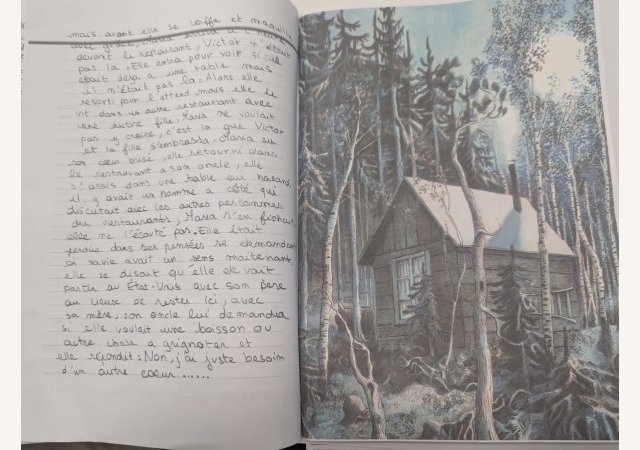 mais avant elle se coiffa et maquilla
avec grace,
devant le restaurant, Victor n'était
pas la. Elle entra pour voir si il
etait deja a une table mais
il n'était pas la. Alors elle
resorti pour l'attend mais elle le
vit dans un autre restaurant avec
une autre fille, Maria ne voulait
pas y croire, c'est la que Victor
et la fille s'embrassa, Maria eu
son coeur brisé, elle retourna dans
le restaurant a son oncle, elle
s'assis dans une table au hasard,
il y avait un homme a côté qui
discutait avec les autres personnes
du restaurants, Maria s'en fichait
elle ne l'écouté pas. Elle était
perdue dans ses pensées se demandan
si sa vie avait un sens maitenant
elle se disait qu'elle devait
partir au État-Unis avec son pere
au lieuse de rester ici, avec
sa mère, son oncle lui demandua
si elle voulait une boisson ou
autre chose a grignoter et
elle répondit : Non, j'ai juste besoin
d'un autre coeur ......